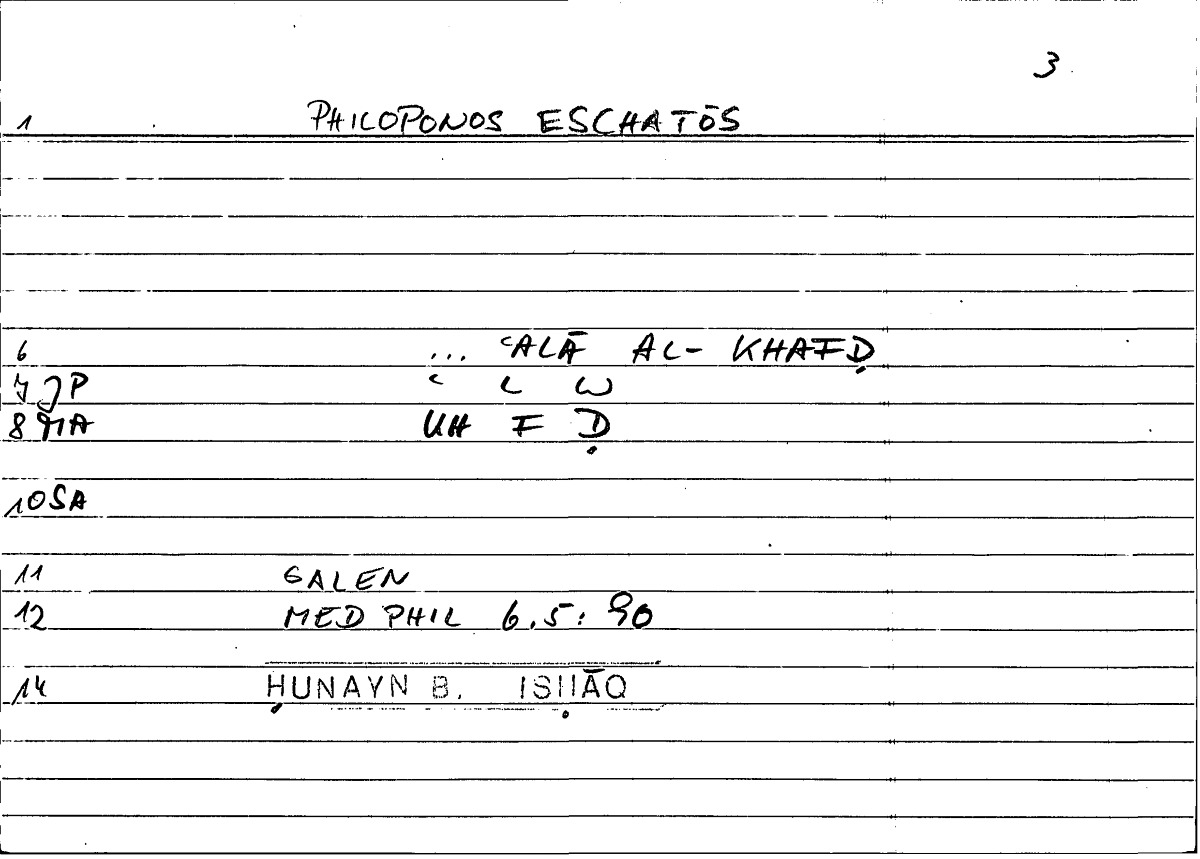 3
1 PHILOPONOS ESCHATŌS
6 ... ʿALĀ AL- KHAFḌ
7 JP ʿ L W
8 MA KH F Ḍ
10 SA
11 GALEN
12 MED PHIL 6.5: 90
14 ḤUNAYN B. ISḤĀQ